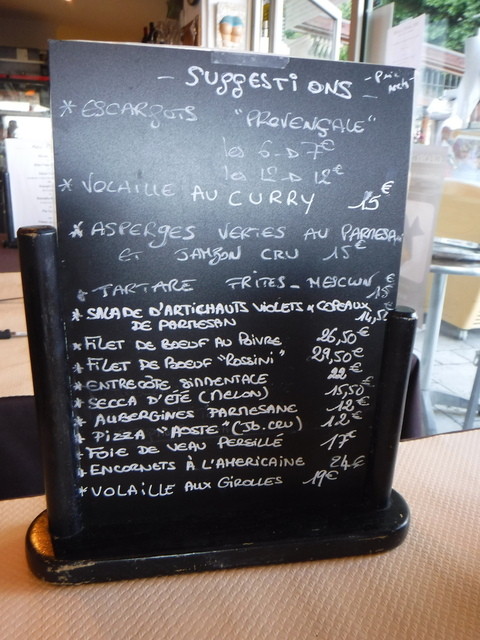 - SUGGESTIONS -
* ESCARGOTS "PROVENÇALE"
les 6 -> 7€
les 12 -> 12€
* VOLAILLE AU CURRY 15€
* ASPERGES VERTES AU PARMESAN
ET JAMBON CRU 15€
* TARTARE FRITES - MESCLUN 15€
* SALADE D'ARTICHAUTS VIOLETS & COPEAUX
DE PARMESAN 14,50€
* FILET DE BOEUF AU POIVRE 26,50€
* FILET DE BOEUF "ROSSINI" 29,50€
* ENTRECÔTE SIMMENTALE 22€
* SECCA D'ÉTÉ (MELON) 15,50€
* AUBERGINES PARMESANE 12€
* PIZZA "AOSTE" (Jb. CRU) 12€
* FOIE DE VEAU PERSILLÉ 17€
* ENCORNETS À L'AMERICAINE 24€
* VOLAILLE AUX GIROLLES 19€